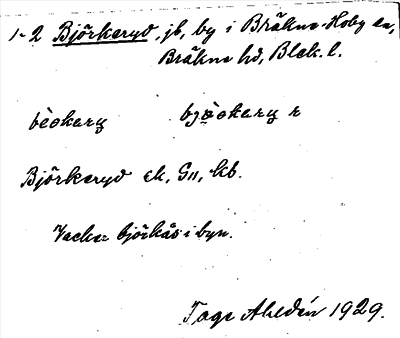 1-2 Björkeryd, jb, by i Bräkne-Hoby sn,
Bräkne hd, Blek. l.
bèokary bjòokary r
Björkeryd ek, GII, kb.
Vacker björkås i byn.
Tage Ahldén 1929.